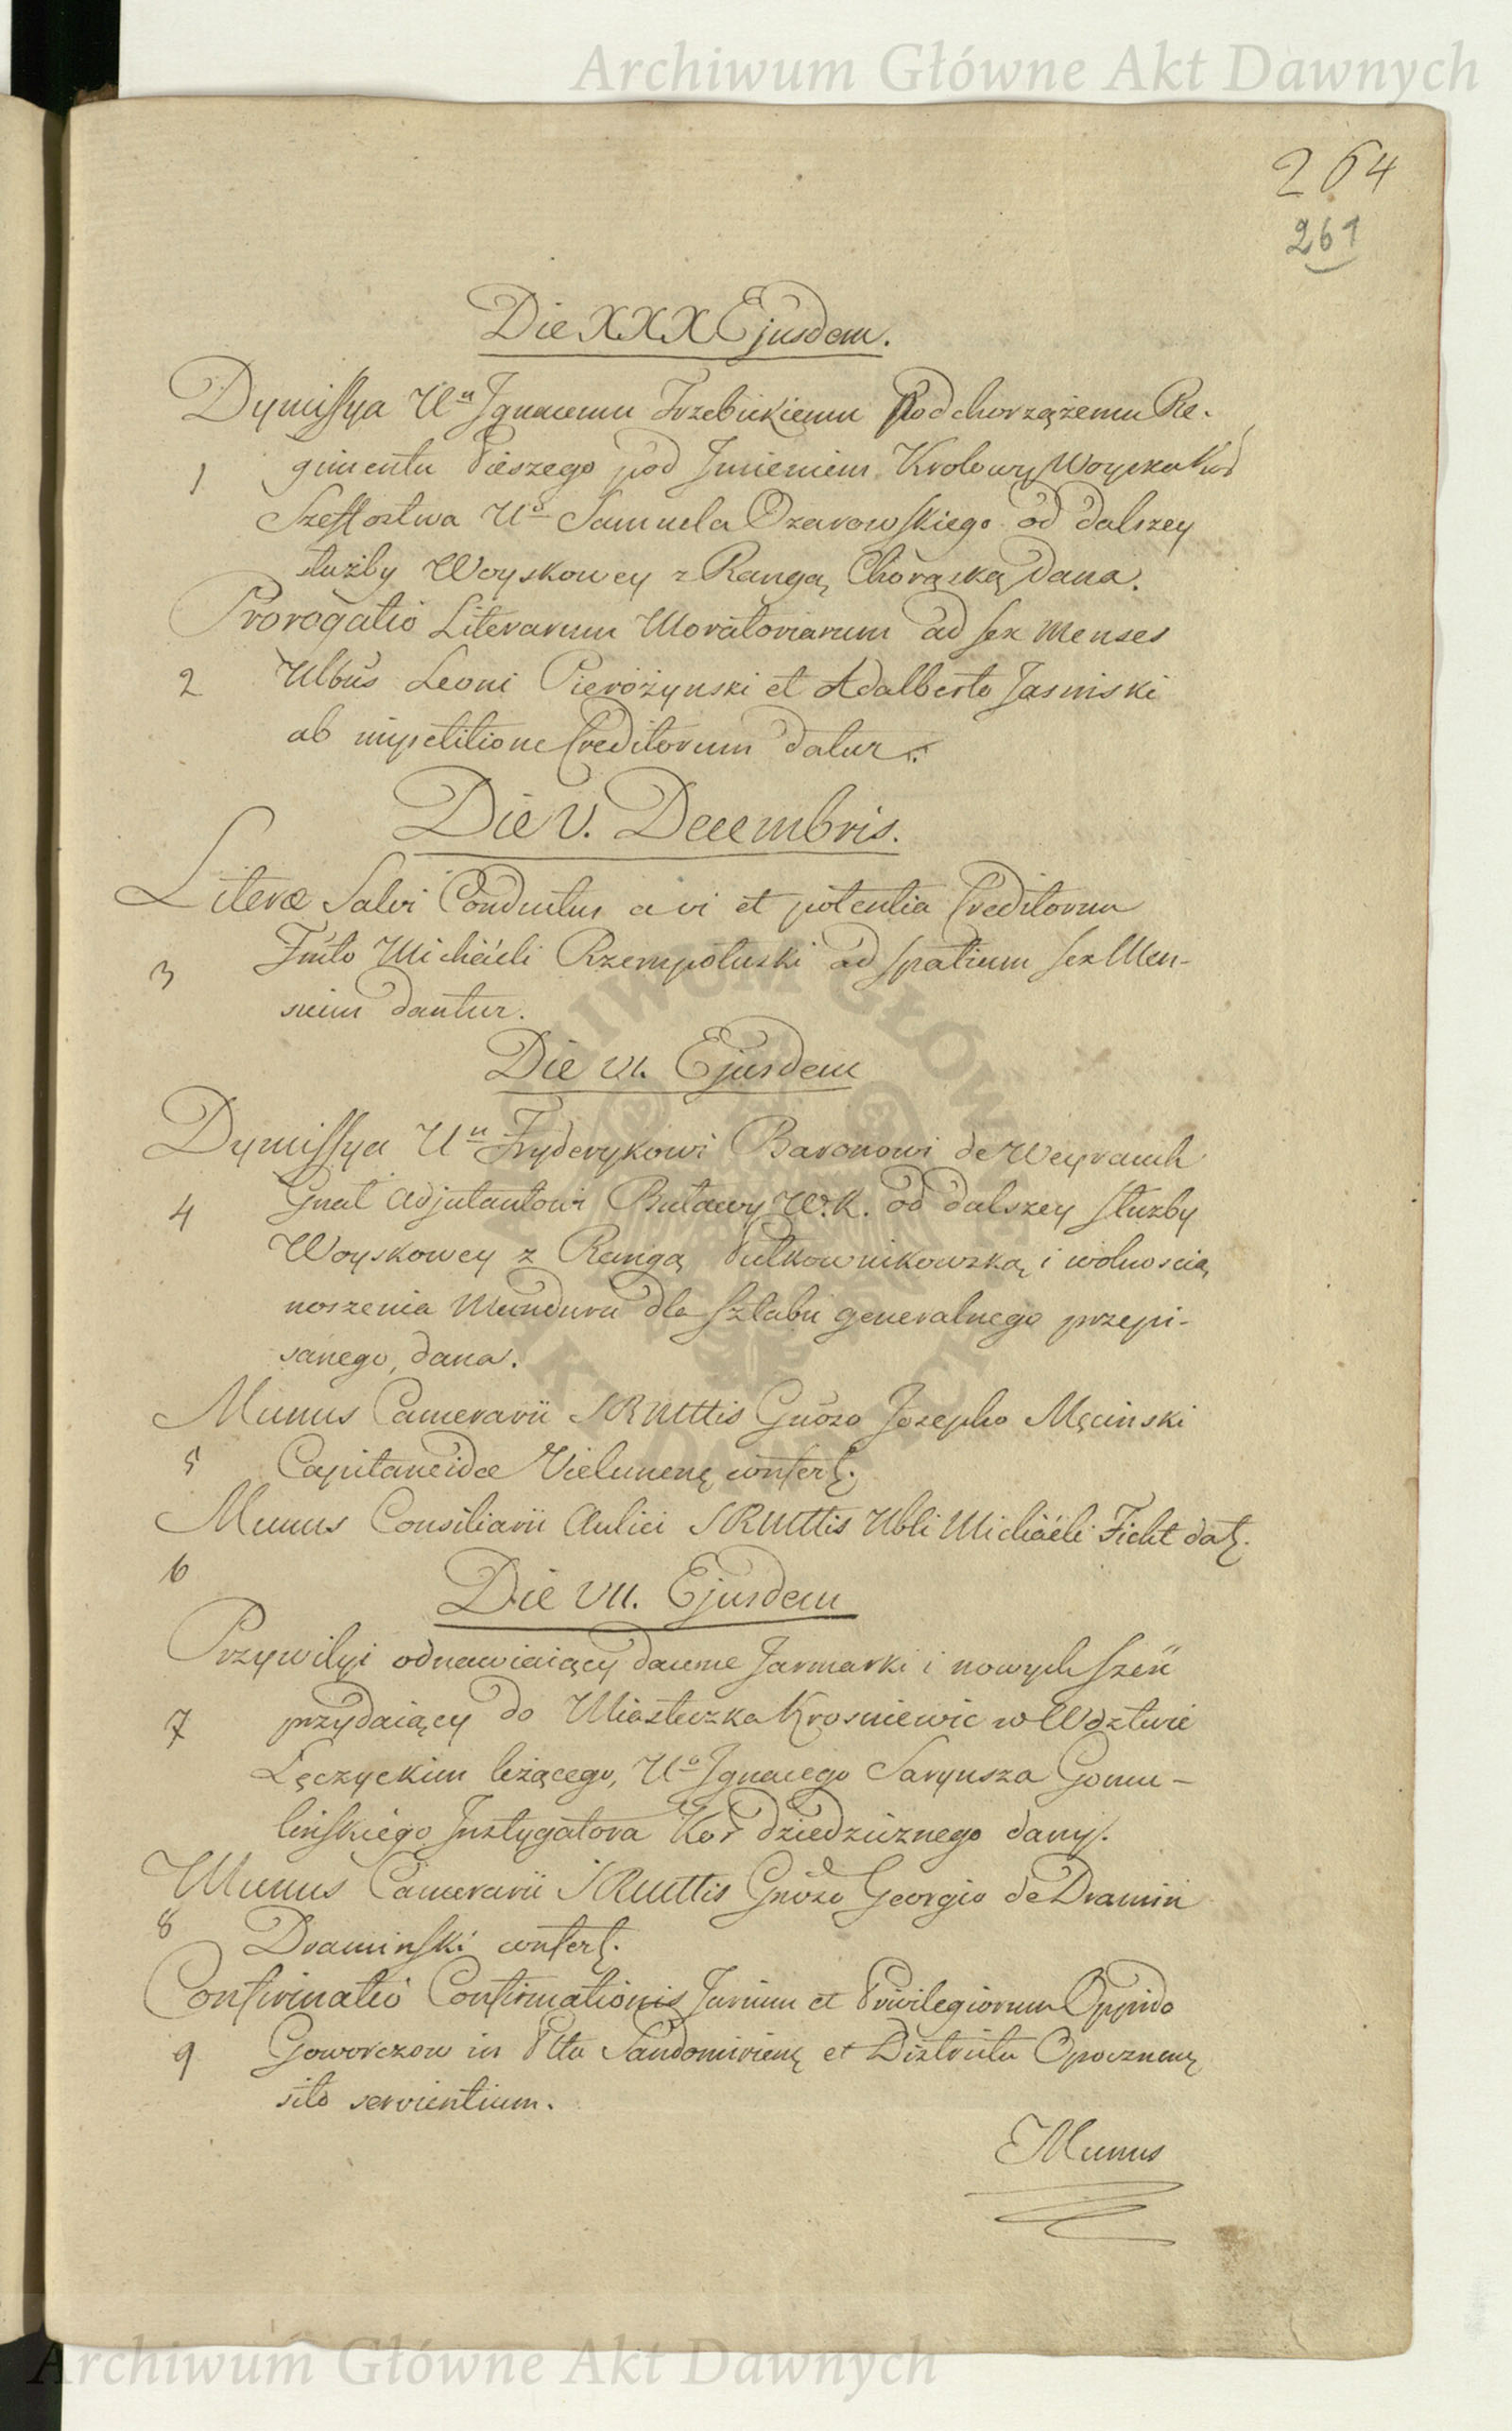 Archiwum Główne Akt Dawnych
264
261
Die XXX Ejusdem.
Dymissya Ur Ignacemu Trzebickiemu Podchorążemu Re-
1 gimentu Pieszego pod Imieniem Krolowy Woyska Kor
Szeffostwa Uo Samuela Ożarowskiego od dalszey
służby Woyskowey z Rangą Chorąską dana.
Prorogatio Literarum Moratoriarum ad sex Menses
2 Ulbus Leoni Pierożynski et Adalberto Jasinski
ab impetitione Creditorum datur.
Die V. Decembris.
Literæ Salvi Conductus a vi et potentia Creditorum
3 Michaeli Rzempołuski ad spatium sex Men-
sium dantur.
Die VI. Ejusdem
Dymissya Un Fryderykowi Baronowi de Weyrauch
4 Gnał Adjutantowi Buławy W.K. od dalszey służby
Woyskowey z Rangą Pułkownikowską i wolnoscią
noszenia Munduru dla sztabu generalnego przepi-
sanego, dana.
Munus Camerarii SRMttis Gnoso Josepho Męcinski
5 Capitaneidæ Vielunenę confert.
Munus Consiliarii Aulici SRMttis Ubli Michaeli Ficht dat.
6
Die VII. Ejusdem
Przywiley odnawiaiący dawne Jarmarki i nowych sześć
7 przydaiący do Miasteczka Krosniewic w Wdztwie
Łęczyckim leżącego, Uo Ignacego Saryusza Gomu-
linskiego Instygatora Kor dziedzicznego dany.
Munus Camerarii SRMttis Gnoso Georgio de Dramin
8 Draminski confert.
Confirmatio Confirmationis Jurium et Privilegiorum Oppido
9 Goworczow in Pttu Sandomirienę et Districtu Opocznenę
sito servientium.
Munus
Archiwum Główne Akt Dawnych